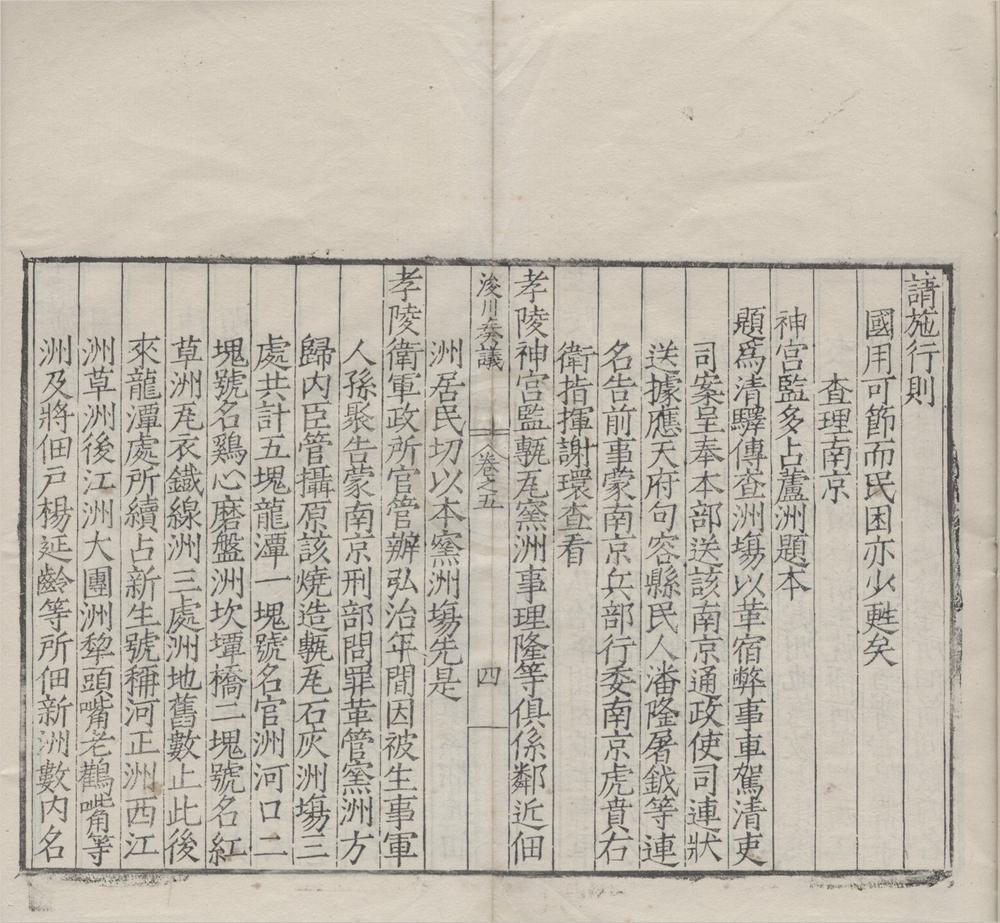 請施行則
國用可節而民困亦少甦矣
查理南京
神宮監多占蘆洲題本
題為清驛傳查洲塲以革宿弊事車駕清吏
司案呈奉本部送該南京通政使司連狀
送據應天府句容縣民人潘隆屠鉞等連
名告前事蒙南京兵部行委南京虎賁右
衛指揮謝環查看
孝陵神宮監甎瓦窯洲事理隆等俱係鄰近佃
浚川奏議 卷之五 四
洲居民切以本窯洲塲先是
孝陵衛軍政所官管辦弘治年間因被生事軍
人孫聚告蒙南京刑部問罪革管窯洲方
歸内臣管攝原該燒造甎瓦石灰洲塲三
處共計五塊龍潭一塊號名官洲河口二
塊號名鷄心磨盤洲坎壇橋二塊號名紅
草洲瓦衣鐵線洲三處洲地舊數止此後
來龍潭處所續占新生號稱河正洲西江
洲草洲後江洲大團洲犂頭嘴老鸛嘴等
洲及將佃戸楊延齡等所佃新洲數内名